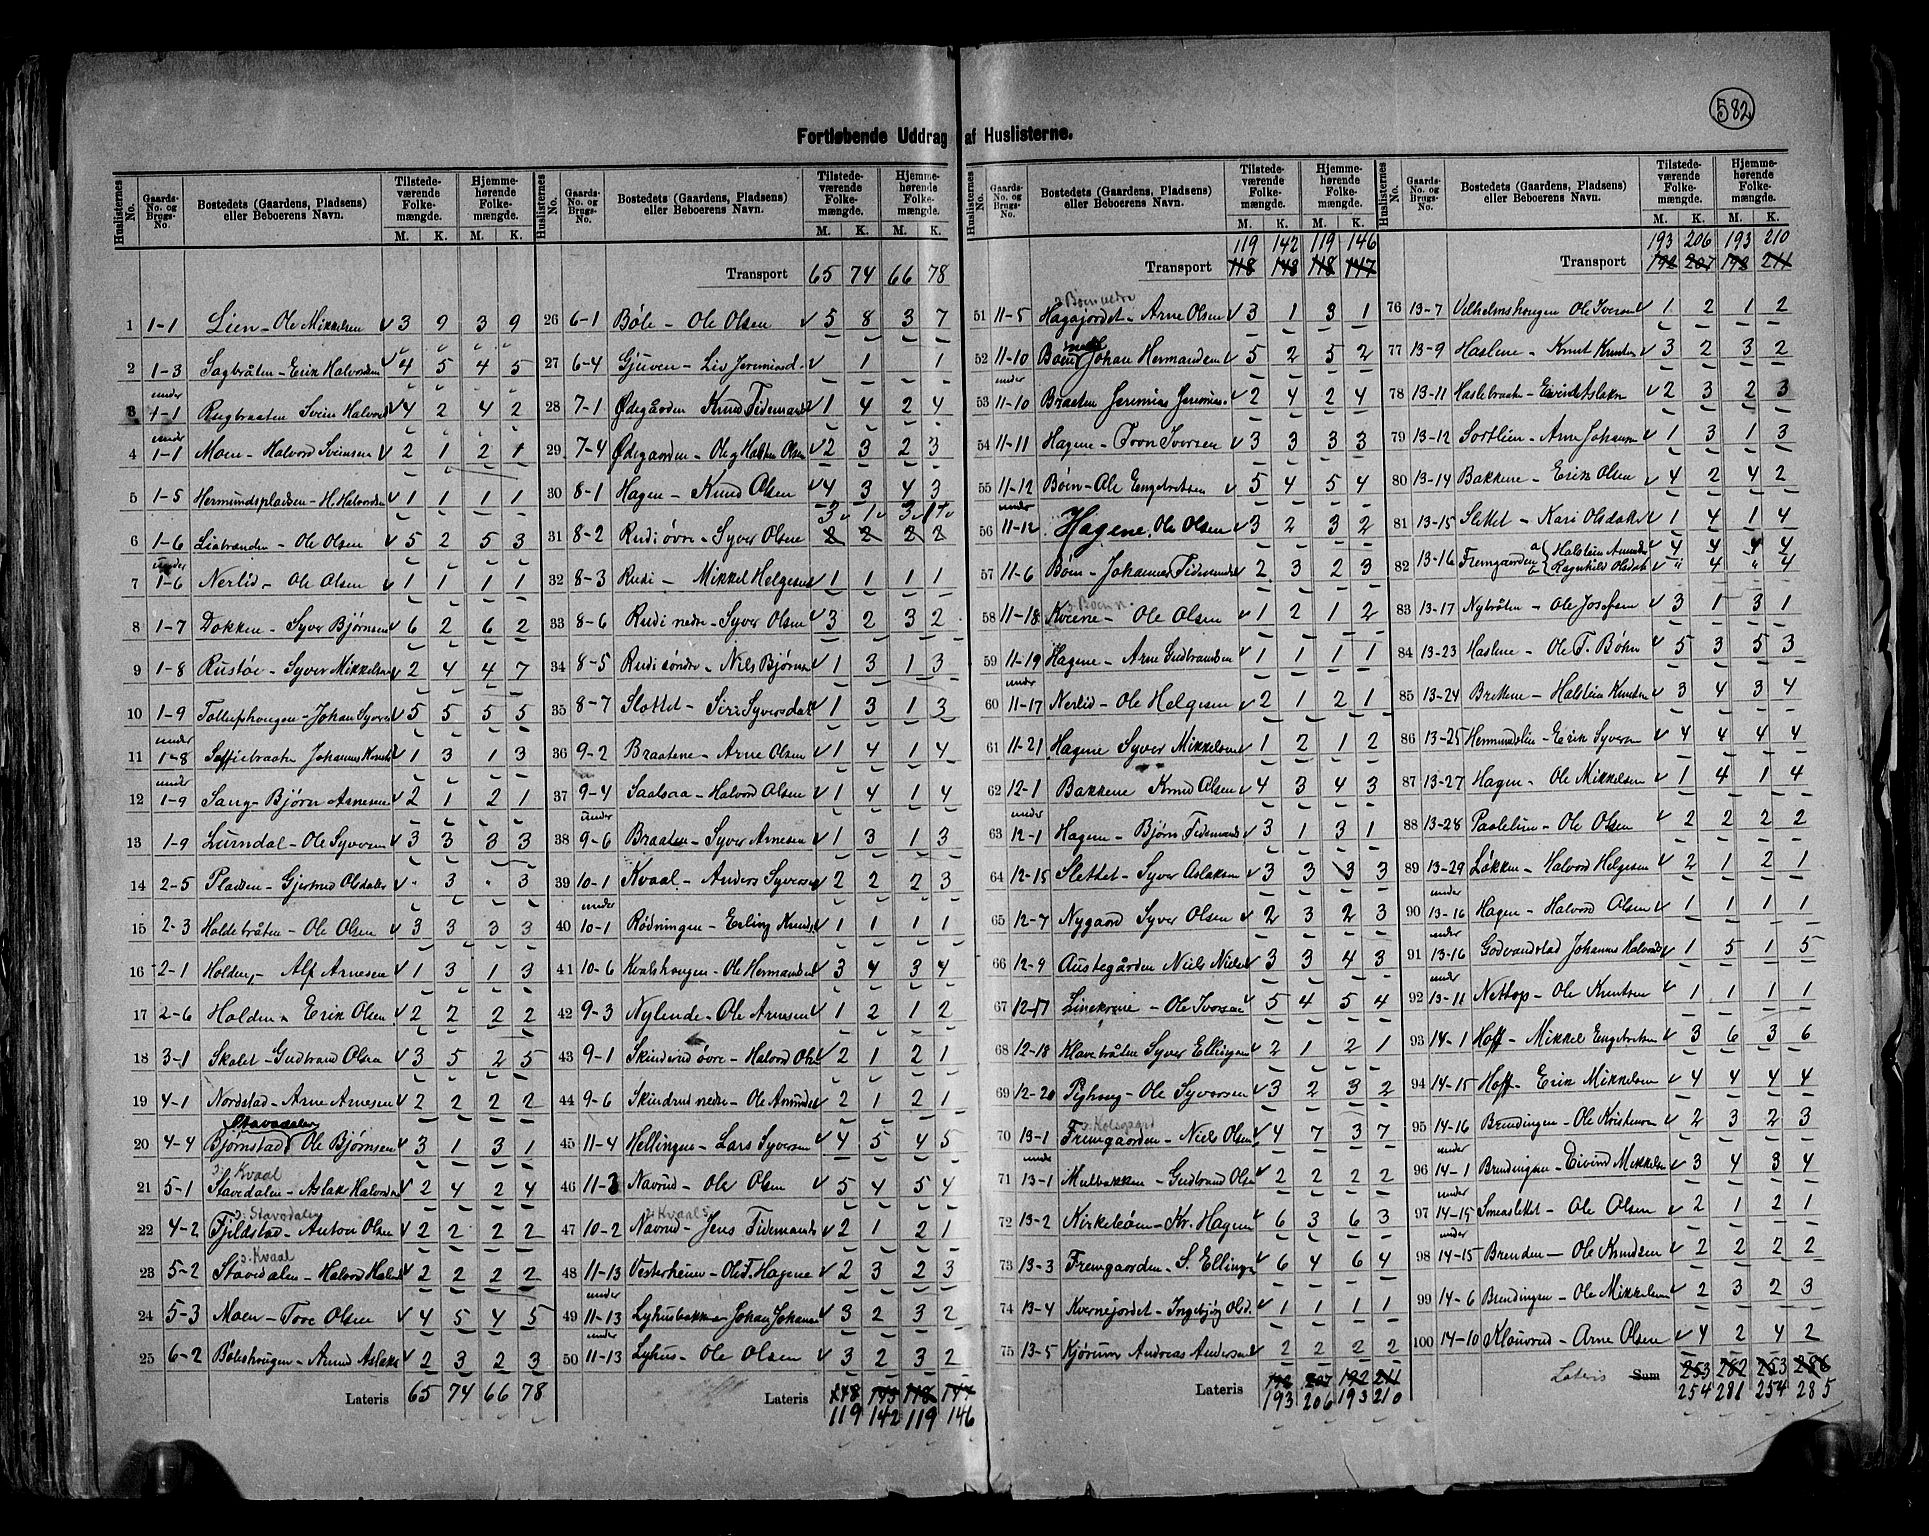 582
Fortløbende Uddrag af Huslisterne.
Huslisternes No. | Gaards-No. og Brugs-No. | Bostedets (Gaardens, Pladsens) eller Beboerens Navn. | Tilstedeværende Folkemængde. M. K. | Hjemmehørende Folkemængde. M. K.
1 1-1 Lien - Ole Mikkelsen 3 9 3 9
2 1-3 Sagbråten - Erik Halvorsen 4 5 4 5
3 under 1-1 Rugbraaten Svein Halvors 4 2 4 2
4 under 1-1 Moen - Halvord Sveinsen 2 1 2 1
5 1-5 Hermundspladsen - H. Halvorsen 1 1 1 1
6 1-6 Liastranden - Ole Olsen 5 2 5 3
7 under 1-6 Nerlid - Ole Olsen 1 1 1 1
8 1-7 Dokken - Syver Bjørnsen 6 2 6 2
9 1-8 Rustøe - Syver Mikkelsen 2 4 4 7
10 1-9 Tollefshougen - Johan Syvers 5 5 5 5
11 under 1-8 Soffiebraaten Johannes 1 3 1 3
12 under 1-9 Sang - Bjørn Arnesen 2 1 2 1
13 1-9 Lurndal - Ole Syversen 3 3 3 3
14 2-5 Pladsen - Gjertrud Olsdatter · 3 · 3
15 2-3 Holdebråten - Ole Olsen 3 3 3 3
16 2-1 Holden, - Alf Arnesen 1 3 1 3
17 2-6 Holden - Erik Olsen 2 2 2 2
18 3-1 Skolt - Gudbrand Olsen 3 5 2 5
19 4-1 Nordstad - Arne Arnesen 2 2 2 2
Stavedalen
20 4-4 Bjørnstad Ole Bjørnsen 3 1 3 1
Kvaal
21 5-1 Stavedalen - Aslak Halvordsen 2 4 2 4
Stavedalen
22 4-2 Fjeldstad - Anton Olsen 2 2 2 2
Kvaal
23 5-2 Stavedalen - Halvord Halv 2 2 2 2
24 5-3 Moen - Tove Olsen 4 5 4 5
25 6-2 Bøleshougen - Amund Aslaks 2 3 2 3
Lateris 65 74 66 78
Huslisternes No. | Gaards-No. og Brugs-No. | Bostedets (Gaardens, Pladsens) eller Beboerens Navn. | Tilstedeværende Folkemængde. M. K. | Hjemmehørende Folkemængde. M. K.
Transport 65 74 66 78
26 6-1 Bøle - Ole Olsen 5 8 3 7
27 6-4 Gjuven - Liv Jeremiasd. 1 1
28 7-1 Ødegården Knud Tidemands 1 4 2 4
29 7-4 Ødegaarden - Ole Halsten Olsen 2 3 2 3
30 8-1 Hagen - Knud Olsen 4 3 4 3
3 1 3 1
31 8-2 Rudi øvre - Syver Olsen 2 2 2 2
32 8-3 Rudi - Mikkel Helgesen 1 1 1 1
33 8-6 Rudi nedre - Syver Olsen 3 2 3 2
34 8-5 Rudi søndre - Nils Bjørns 1 3 1 3
35 8-7 Slottet - Siri Syversdatt 1 3 1 3
36 9-2 Braatene - Arne Olsen 1 4 1 4
37 9-4 Saatsaa - Halvord Olsen 1 4 1 4
38 under 9-6 Braaten - Syver Arnesen 1 3 1 3
39 10-1 Kvaal - Anders Syversen 2 2 2 3
40 under 10-1 Rødningen - Erling Knuds 1 1 1 1
41 10-6 Kvalshougen - Ole Hermansen 3 4 3 4
42 9-3 Nylende - Ole Arnesen 1 2 1 2
43 9-1 Skindrud øvre - Halvord Ols 2 1 2 1
44 9-6 Skindrud nedre - Ole Amunds 2 1 2 1
45 11-4 Hellingen - Lars Syversen 4 5 4 5
46 11-3 Navrud - Ole Olsen 5 4 5 4
Kvaal
47 10-2 Navrud - Jens Tidemands 2 1 2 1
48 11-13 Vesterheim - Ole T. Hagene 2 3 2 3
49 under 11-13 Lyhusbakken Johan Johann 3 2 3 2
50 under 11-13 Lyhus - Ole Olsen 3 2 3 2
Lateris 118 143 118 147
119 142 119 146
Huslisternes No. | Gaards-No. og Brugs-No. | Bostedets (Gaardens, Pladsens) eller Beboerens Navn. | Tilstedeværende Folkemængde. M. K. | Hjemmehørende Folkemængde. M. K.
119 142 119 146
Transport 118 143 118 147
Bøen nedre
51 11-5 Hagajordet - Arne Olsen 3 1 3 1
52 11-10 Bøen Johan Hermandsen 5 2 5 2
53 under 11-10 Braaten Jeremias Jeremias. 2 4 2 4
54 11-11 Hagene - Tron Iversen 3 3 3 3
55 11-12 Bøin - Ole Engebretsen 5 4 5 4
56 under 11-12 Hagene, Ole Olsen 3 2 3 2
57 11-6 Bøin - Johannes Tidemands 2 3 2 3
Bøen n.
58 11-18 Kverne - Ole Olsen 1 2 1 2
59 11-19 Hagene - Arne Gudbrandsen 1 1 1 1
60 under 11-17 Nerlid - Ole Helgesen 2 1 2 1
61 11-21 Hagene Syver Mikkelsen 1 2 1 2
62 12-1 Bakkene Knud Olsen 4 3 4 3
63 under 12-1 Hagen - Bjørn Tidemands 3 1 3 1
64 12-15 Slettet - Syver Aslaksen 3 3 3 3
65 12-7 Nygaard Syver Olsen 2 3 2 3
66 12-9 Austegården Niels Niels 3 3 4 3
67 12-17 Linekreine - Ole Iversen 5 4 5 4
68 12-18 Klavebråten Syver Ellingsen 2 1 2 1
69 12-20 Pighoug - Ole Syversen 3 2 3 2
Kolsgaard
70 13-1 Fremgaarden - Niels Olsen 4 7 3 7
71 under 13-1 Mulbakken - Gudbrand Olsen 2 2 2 2
72 13-2 Kirkebøen - Kr. Hagen 6 3 6 3
73 13-3 Fremgaarden - S. Ellings 6 4 6 4
74 13-4 Kvernejordet - Ingebjøg Old. 1 1 1 1
75 13-5 Kjørum Andreas Andersen 2 2 2 2
Lateris 192 207 192 211
193 206 193 210
Huslisternes No. | Gaards-No. og Brugs-No. | Bostedets (Gaardens, Pladsens) eller Beboerens Navn. | Tilstedeværende Folkemængde. M. K. | Hjemmehørende Folkemængde. M. K.
193 206 193 210
Transport 192 207 192 211
76 13-7 Vilhelmshougen Ole Iversen 1 2 1 2
77 13-9 Haslene - Knut Knutsen 3 2 3 2
78 13-11 Haslebraaten - Eivind Aslaksen 2 3 2 3
79 13-12 Sortlien - Arne Johannsen 1 3 1 3
80 13-14 Bakkene - Erik Olsen 4 2 4 2
81 13-15 Slettet - Kari Olsdatter 1 4 1 4
82 13-16 Fremgaarden a Halstein Amunds 4 4 4 4
b Ragnhild Olsdatt " 4 " 4
83 13-17 Nybråten - Ole Josefsen 3 1 3 1
84 13-23 Haslene - Ole T. Bøhn 5 3 5 3
85 13-24 Brattene - Halstein Knutsen 3 4 3 4
86 13-25 Hermundslien - Erik Syversen 4 4 4 4
87 13-27 Hagen - Ole Mikkelsen 1 4 1 4
88 13-28 Paalelien - Ole Olsen 2 2 2 2
89 13-29 Løkken - Halvord Helgesen 2 1 2 1
90 under 13-16 Hagen - Halvord Olsen 1 1 1 1
91 under 13-16 Godvandstad Johannes Halvords 1 5 1 5
92 under 13-11 Nettop - Ole Knutsen 1 1 1 1
93 14-1 Hoff - Mikkel Engebretsen 3 6 3 6
94 14-15 Hoff - Erik Mikkelsen 4 4 4 4
95 14-16 Brendingen - Ole Kristensen 2 3 2 3
96 under 14-1 Brendingen - Eivind Mikkelsen 3 4 3 4
97 under 14-15 Smeaslettet - Ole Olsen 2 1 2 1
98 under 14-15 Brenden - Ole Knudsen 2 2 2 2
99 14-6 Brendingen - Ole Mikkelsen 2 3 2 3
100 14-10 Klouvrud - Arne Olsen 4 2 4 2
Lateris Sum 253 282 253 286
254 281 254 285